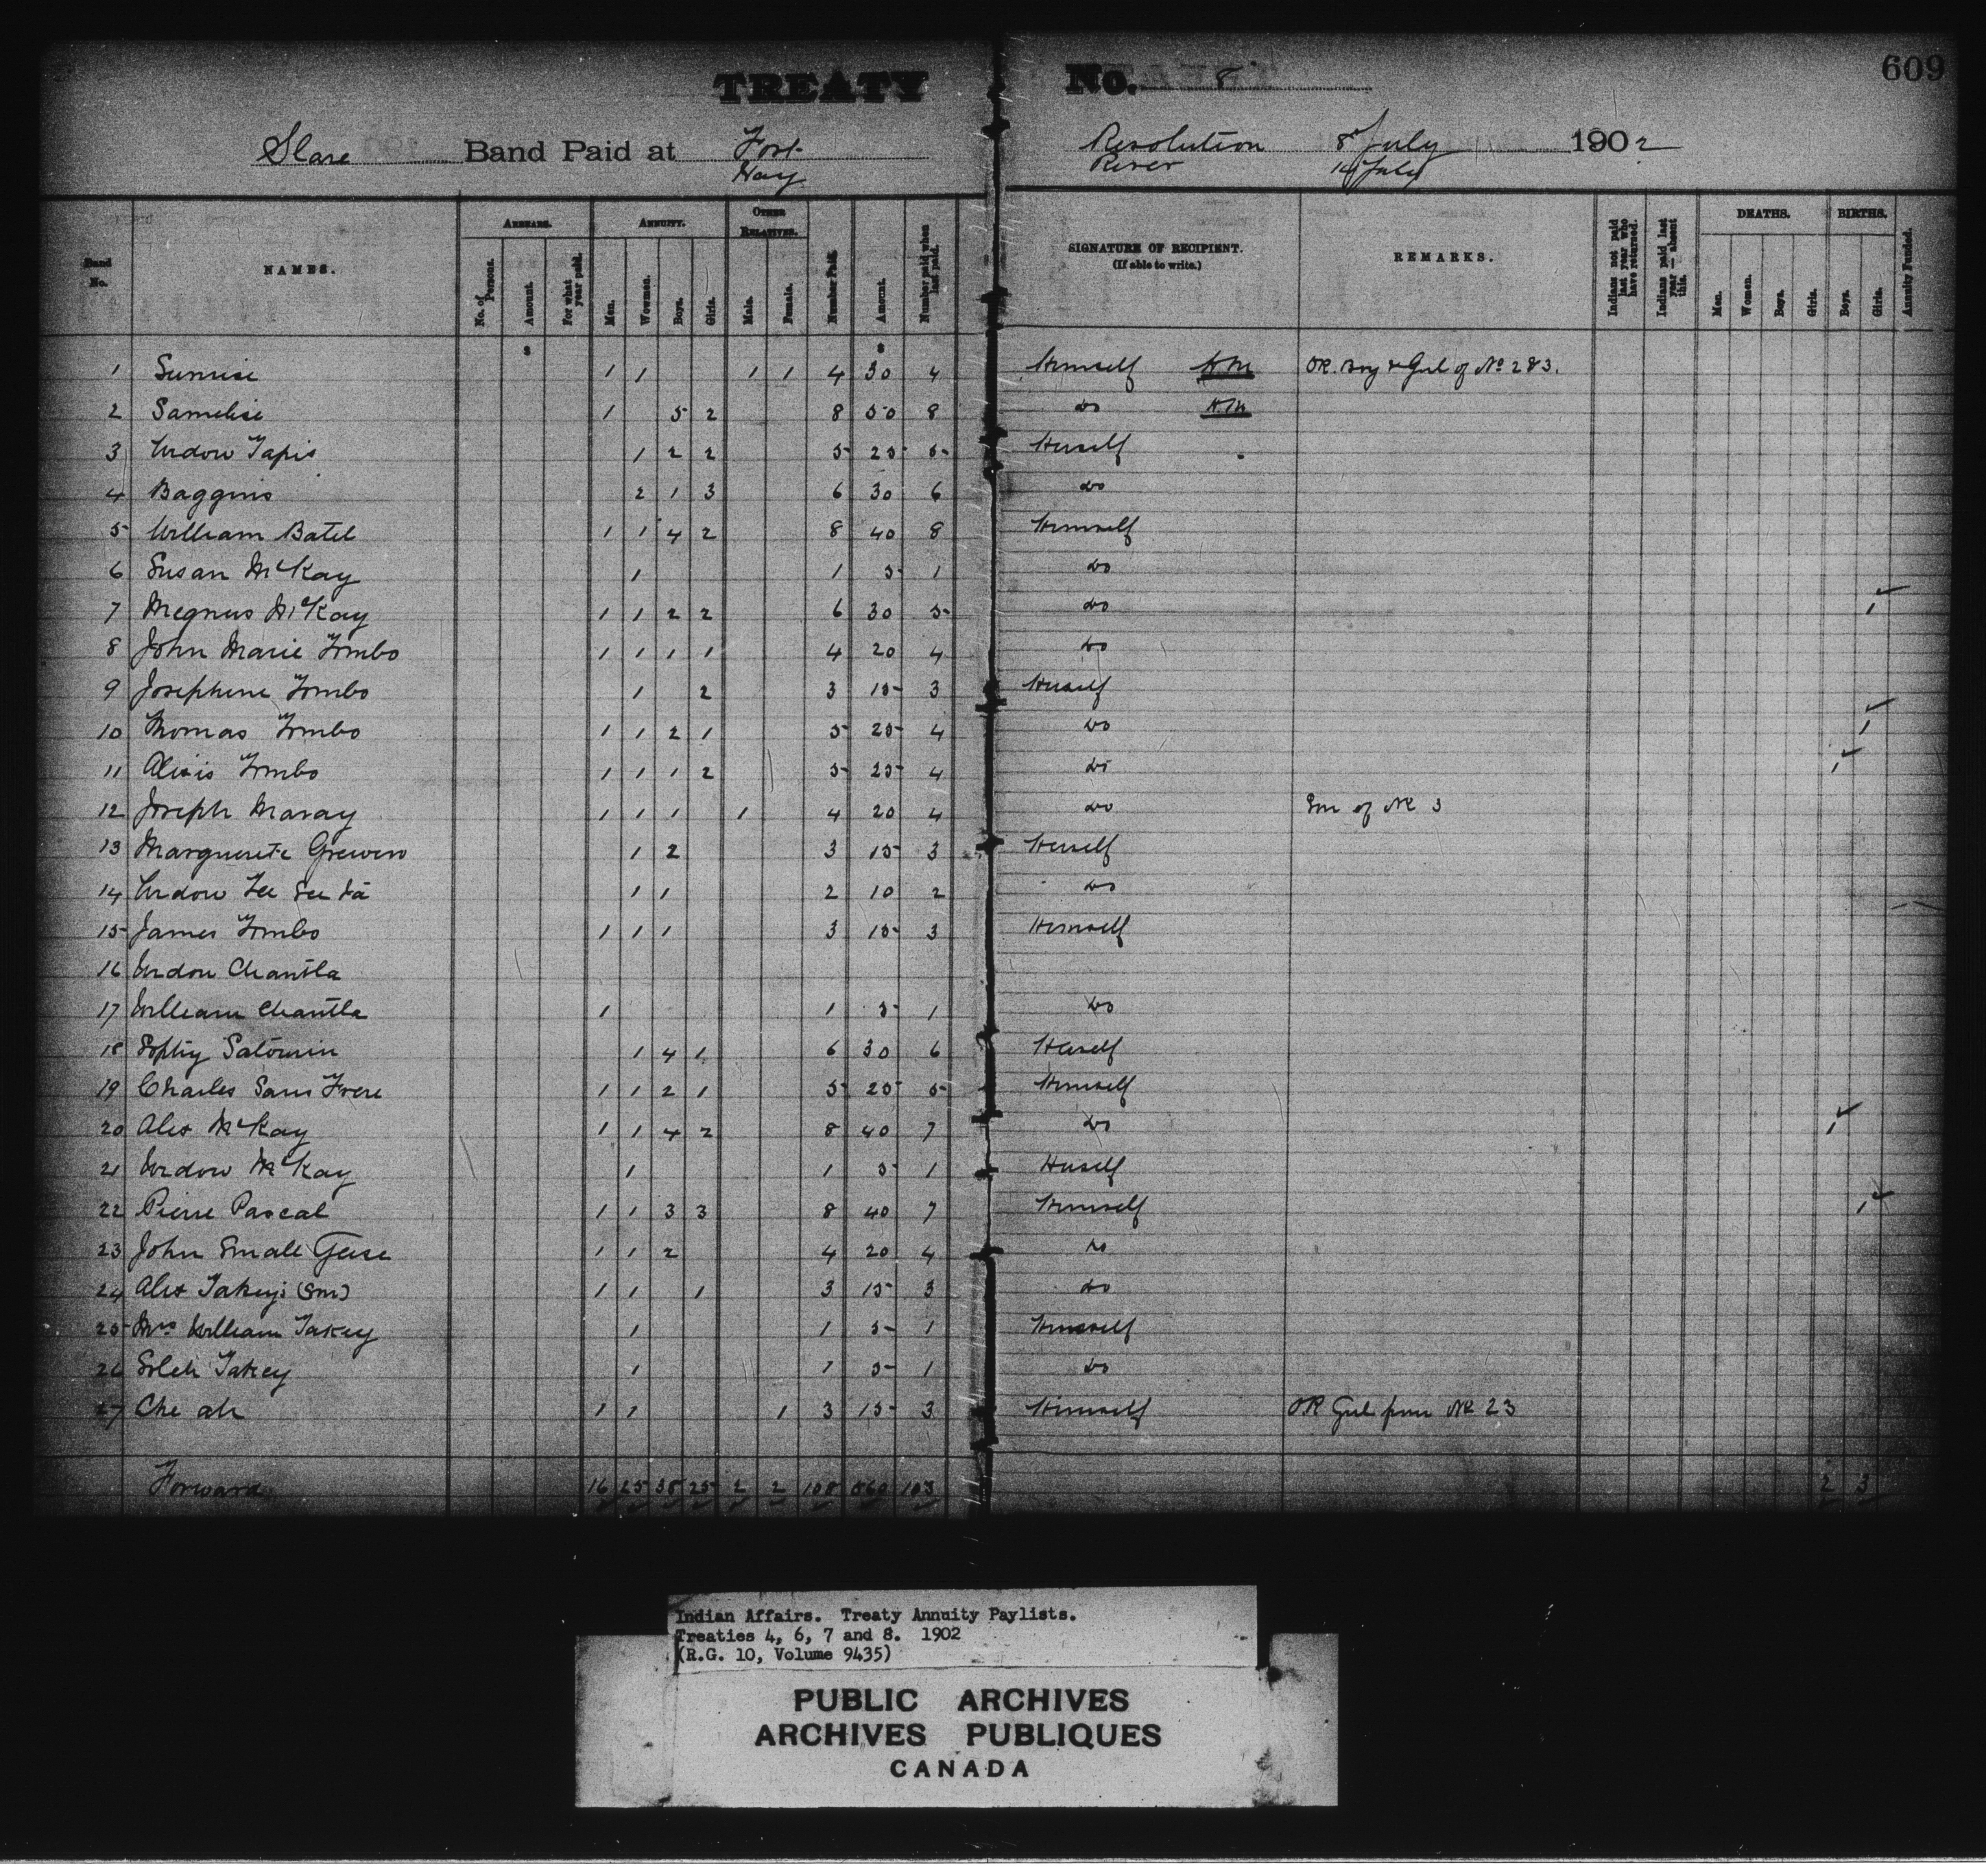 609
TREATY No. 8
Slave Band Paid at Fort Resolution 8 July 1902
Hay River 14 July
Band No. NAMES. ARREARS. No. of Persons. Amount. For what year paid. ANNUITY. Men. Women. Boys. Girls. OTHER RELATIVES. Male. Female. Number Paid. Amount. Number paid when last paid. SIGNATURE OF RECIPIENT. (If able to write.) REMARKS. Indians not paid last year who have returned. Indians paid last year — absent this. DEATHS. Men. Women. Boys. Girls. BIRTHS. Boys. Girls. Annuity Funded.
$ $
1 Sunrise 1 1 1 1 4 30 4 Himself H.M OR. Boy & Girl of No 283.
2 Samelise 1 5 2 8 50 8 Do H.M
3 Widow Tapis 1 2 2 5 25 5 Herself
4 Baggins 2 1 3 6 30 6 Do
5 William Batel 1 1 4 2 8 40 8 Himself
6 Susan McKay 1 1 5 1 Do
7 Megnus McKay 1 1 2 2 6 30 5 Do 1
8 John Marie Fombo 1 1 1 1 4 20 4 Do
9 Josephine Fombo 1 2 3 15 3 Herself
10 Thomas Fombo 1 1 2 1 5 25 4 Do 1
11 Alexis Fombo 1 1 1 2 5 25 4 Do 1
12 Joseph Maray 1 1 1 1 4 20 4 Do Son of No 3
13 Marguerete 1 2 3 15 3 Herself
14 Widow 1 1 2 10 2 Do
15 James Fombo 1 1 1 3 15 3 Himself
16 Widow Chantla
17 William Chantla 1 1 5 1 Do
18 Sophy 1 4 1 6 30 6 Herself
19 Charles Sans Frere 1 1 2 1 5 25 5 Himself
20 Alex McKay 1 1 4 2 8 40 7 Do 1
21 Widow McKay 1 1 5 1 Herself
22 Pierre Pascal 1 1 3 3 8 40 7 Himself 1
23 John Small Geese 1 1 2 4 20 4 Do
24 Alex 1 1 1 3 15 3 Do
25 Mrs William Takey 1 1 5 1 Himself
26 Takey 1 1 5 1 Do
27 Che ah 1 1 1 3 15 3 Himself OR Girl from No 23
Forward 16 25 38 25 2 2 108 560 103 2 3
Indian Affairs. Treaty Annuity Paylists.
Treaties 4, 6, 7 and 8. 1902
(R.G. 10, Volume 9435)
PUBLIC ARCHIVES
ARCHIVES PUBLIQUES
CANADA